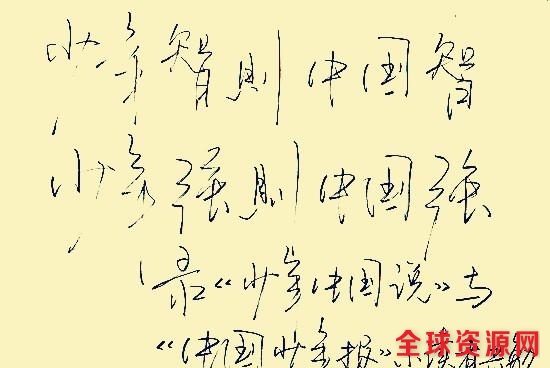 少年智则中国智
少年强则中国强
录《少年中国说》与
《中国少年报》小读者共勉
全球资源网